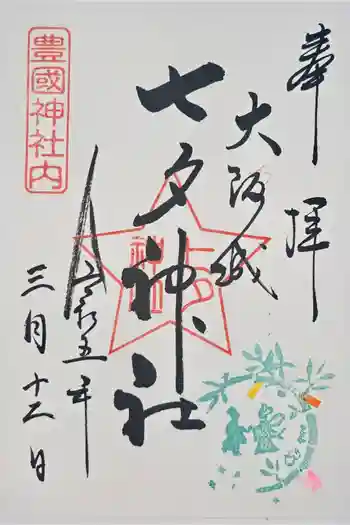 奉拝
大阪城
七夕神社
七夕神社
令和五年
三月十二日
豊國神社内